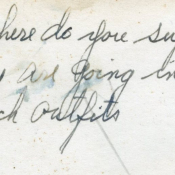 here do you su
are going in
ch outfits